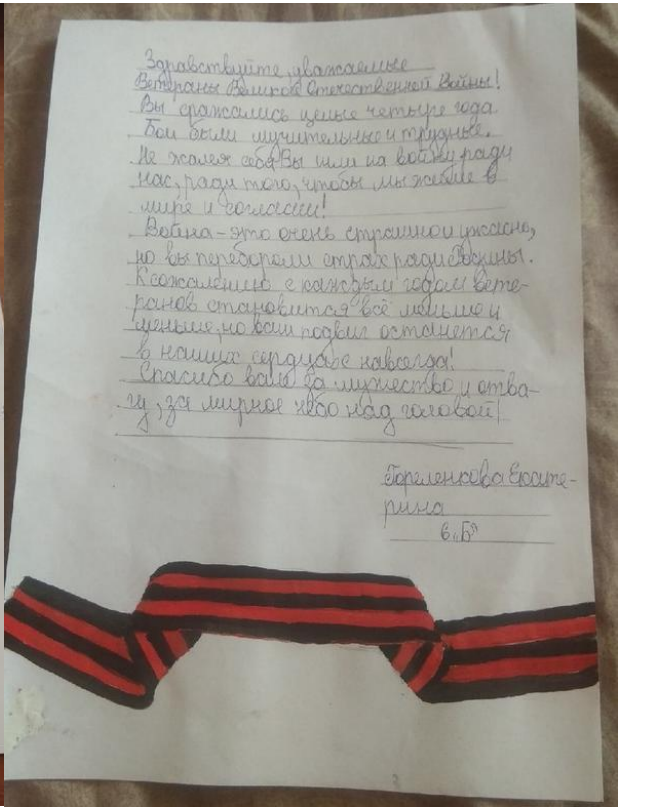 Здравствуйте, уважаемые
Ветераны Великой Отечественной Войны!
Вы сражались целые четыре года.
Бои были мучительные и трудные.
Не жалея себя Вы шли на войну ради
нас, ради того, чтобы мы жили в
мире и согласии!
Война - это очень страшно и ужасно,
но вы перебороли страх ради Родины.
К сожалению с каждым годом вете-
ранов становится всё меньше и
меньше, но ваш подвиг останется
в наших сердцах навсегда!
Спасибо вам за мужество и отва-
гу, за мирное небо над головой!
Гореленкова Екате-
рина
6 „Б"